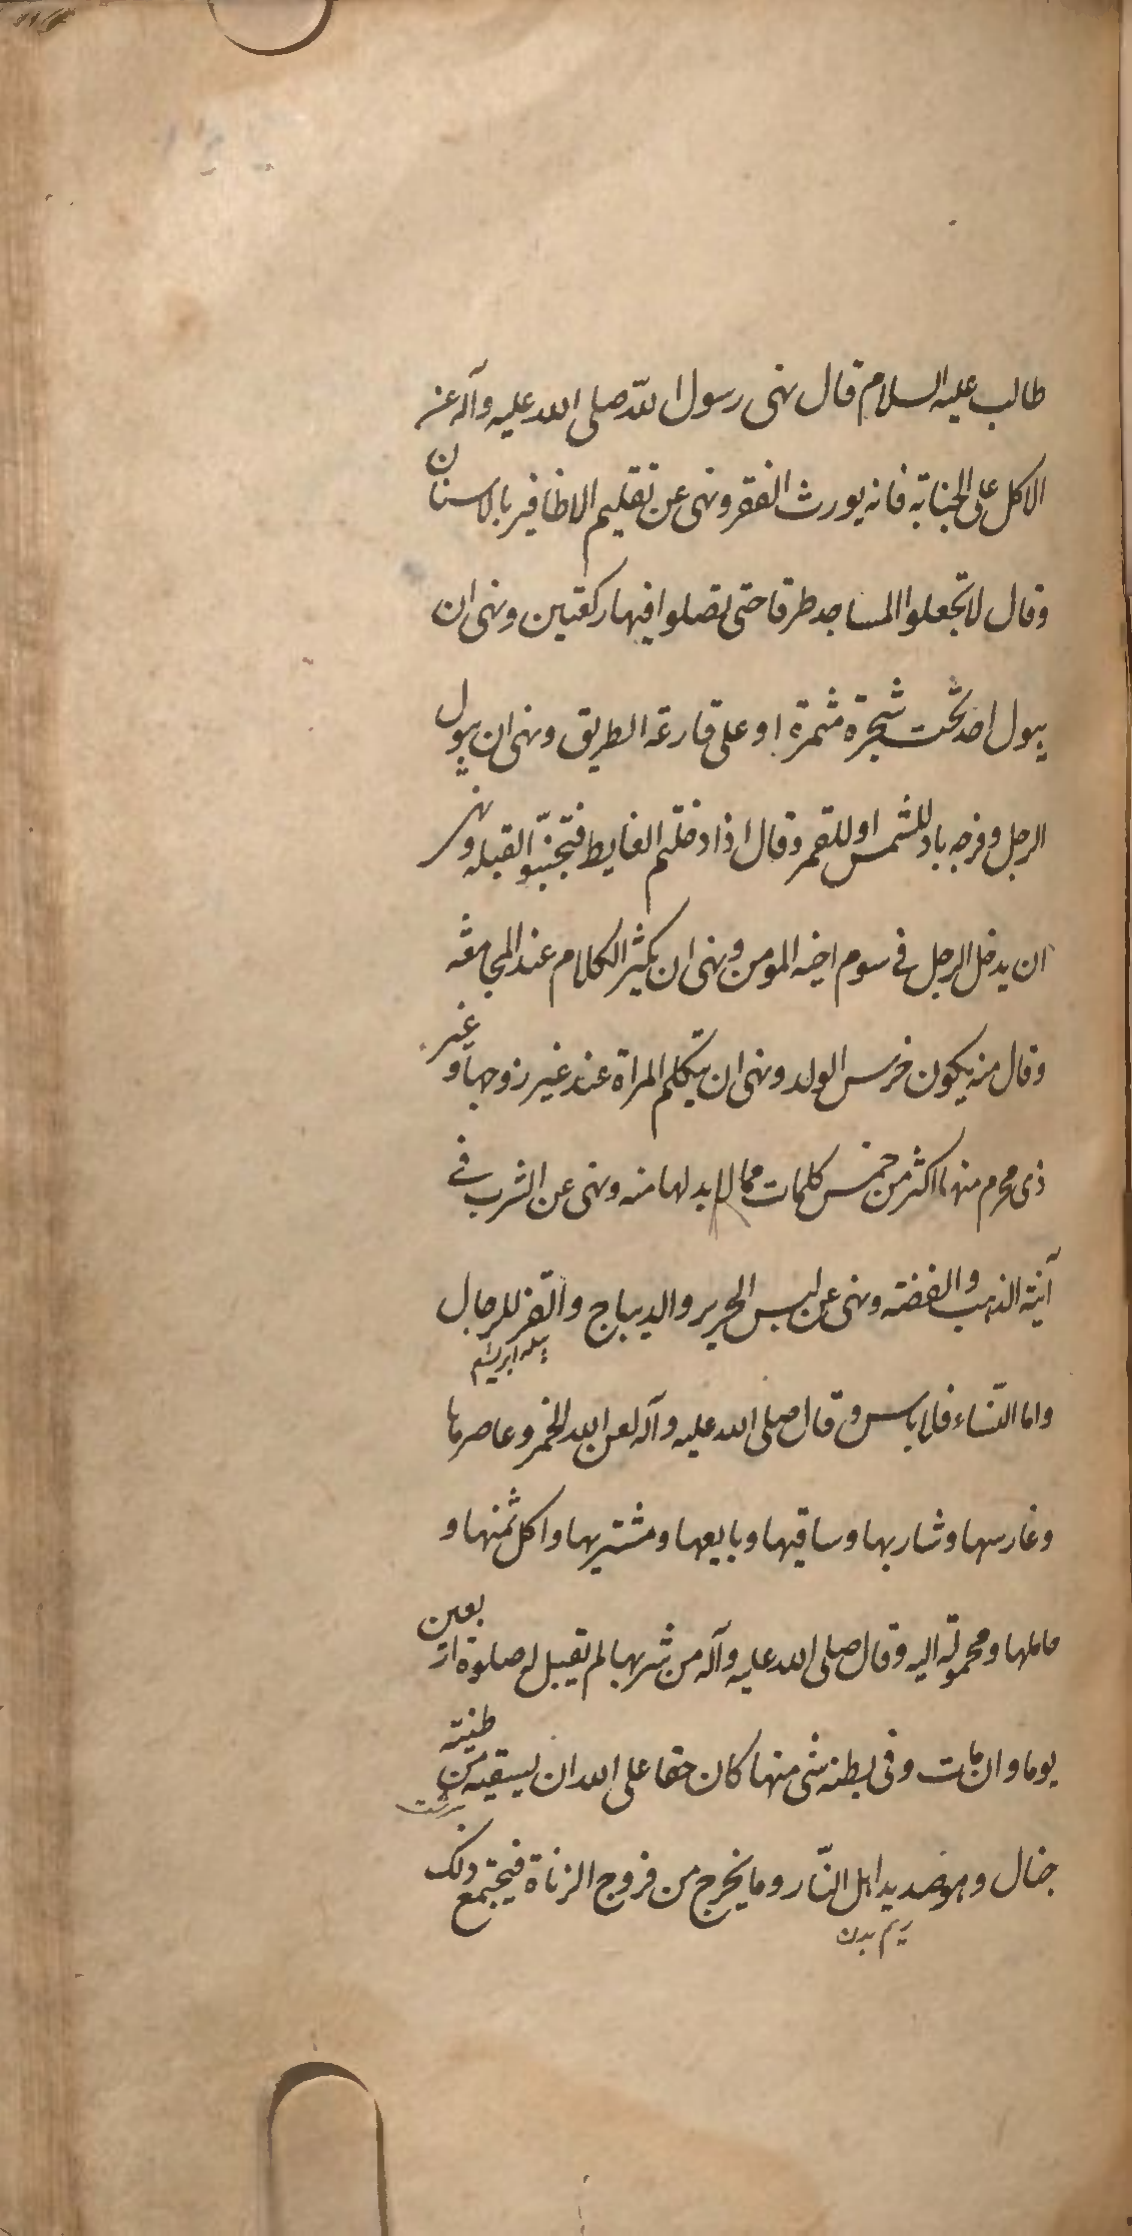 طالب عليه السلام قال نهى رسول الله صلى الله عليه وآله عن
الاكل على الجنابة فانه يورث الفقر ونهى عن تقليم الاظافير بالاسنان
وقال لا تجعلوا المساجد طرقا حتى تصلوا فيها ركعتين ونهى ان
يبول احد تحت شجرة مثمرة او على قارعة الطريق ونهى ان يبول
الرجل وفرجه باد للشمس او للقمر وقال اذا دخلتم الغايط فتجنبّوا القبلة ونهى
ان يدخل الرجل فى سوم اخيه المومن ونهى ان يكثر الكلام عند المجامعة
وقال منه يكون خرس الولد ونهى ان يتكلم المراة عند غير زوجها وغير
ذى محرم منها اكثر من خمس كلمات مما لابد لها منه ونهى عن الشرب فى
آنية الذهب والفضة ونهى عن لبس الحرير والديباج والقز للرجال
پيله ابريشم
واما النّساء فلا باس وقال صلى الله عليه وآله لعن الله الخمر وعاصرها
وغارسها وشاربها وساقيها وبايعها ومشتريها واكل ثمنها و
حاملها ومحمولة اليه وقال صلى الله عليه وآله من شربها لم تقبل له صلوة اربعين
يوما وان مات وفى بطنه شى منها كان حقا على الله ان يسقيه من طينة
خبال وهو صديد اهل النّار وما يخرج من فروج الزناة فيجتمع ذلك
ريم بدن